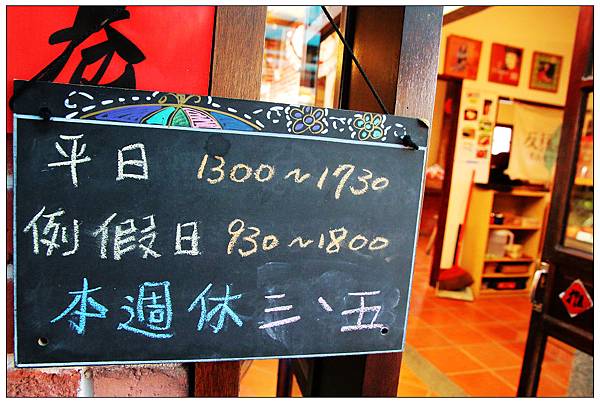 平日 1300~1730
例假日 930~1800
本週休三、五